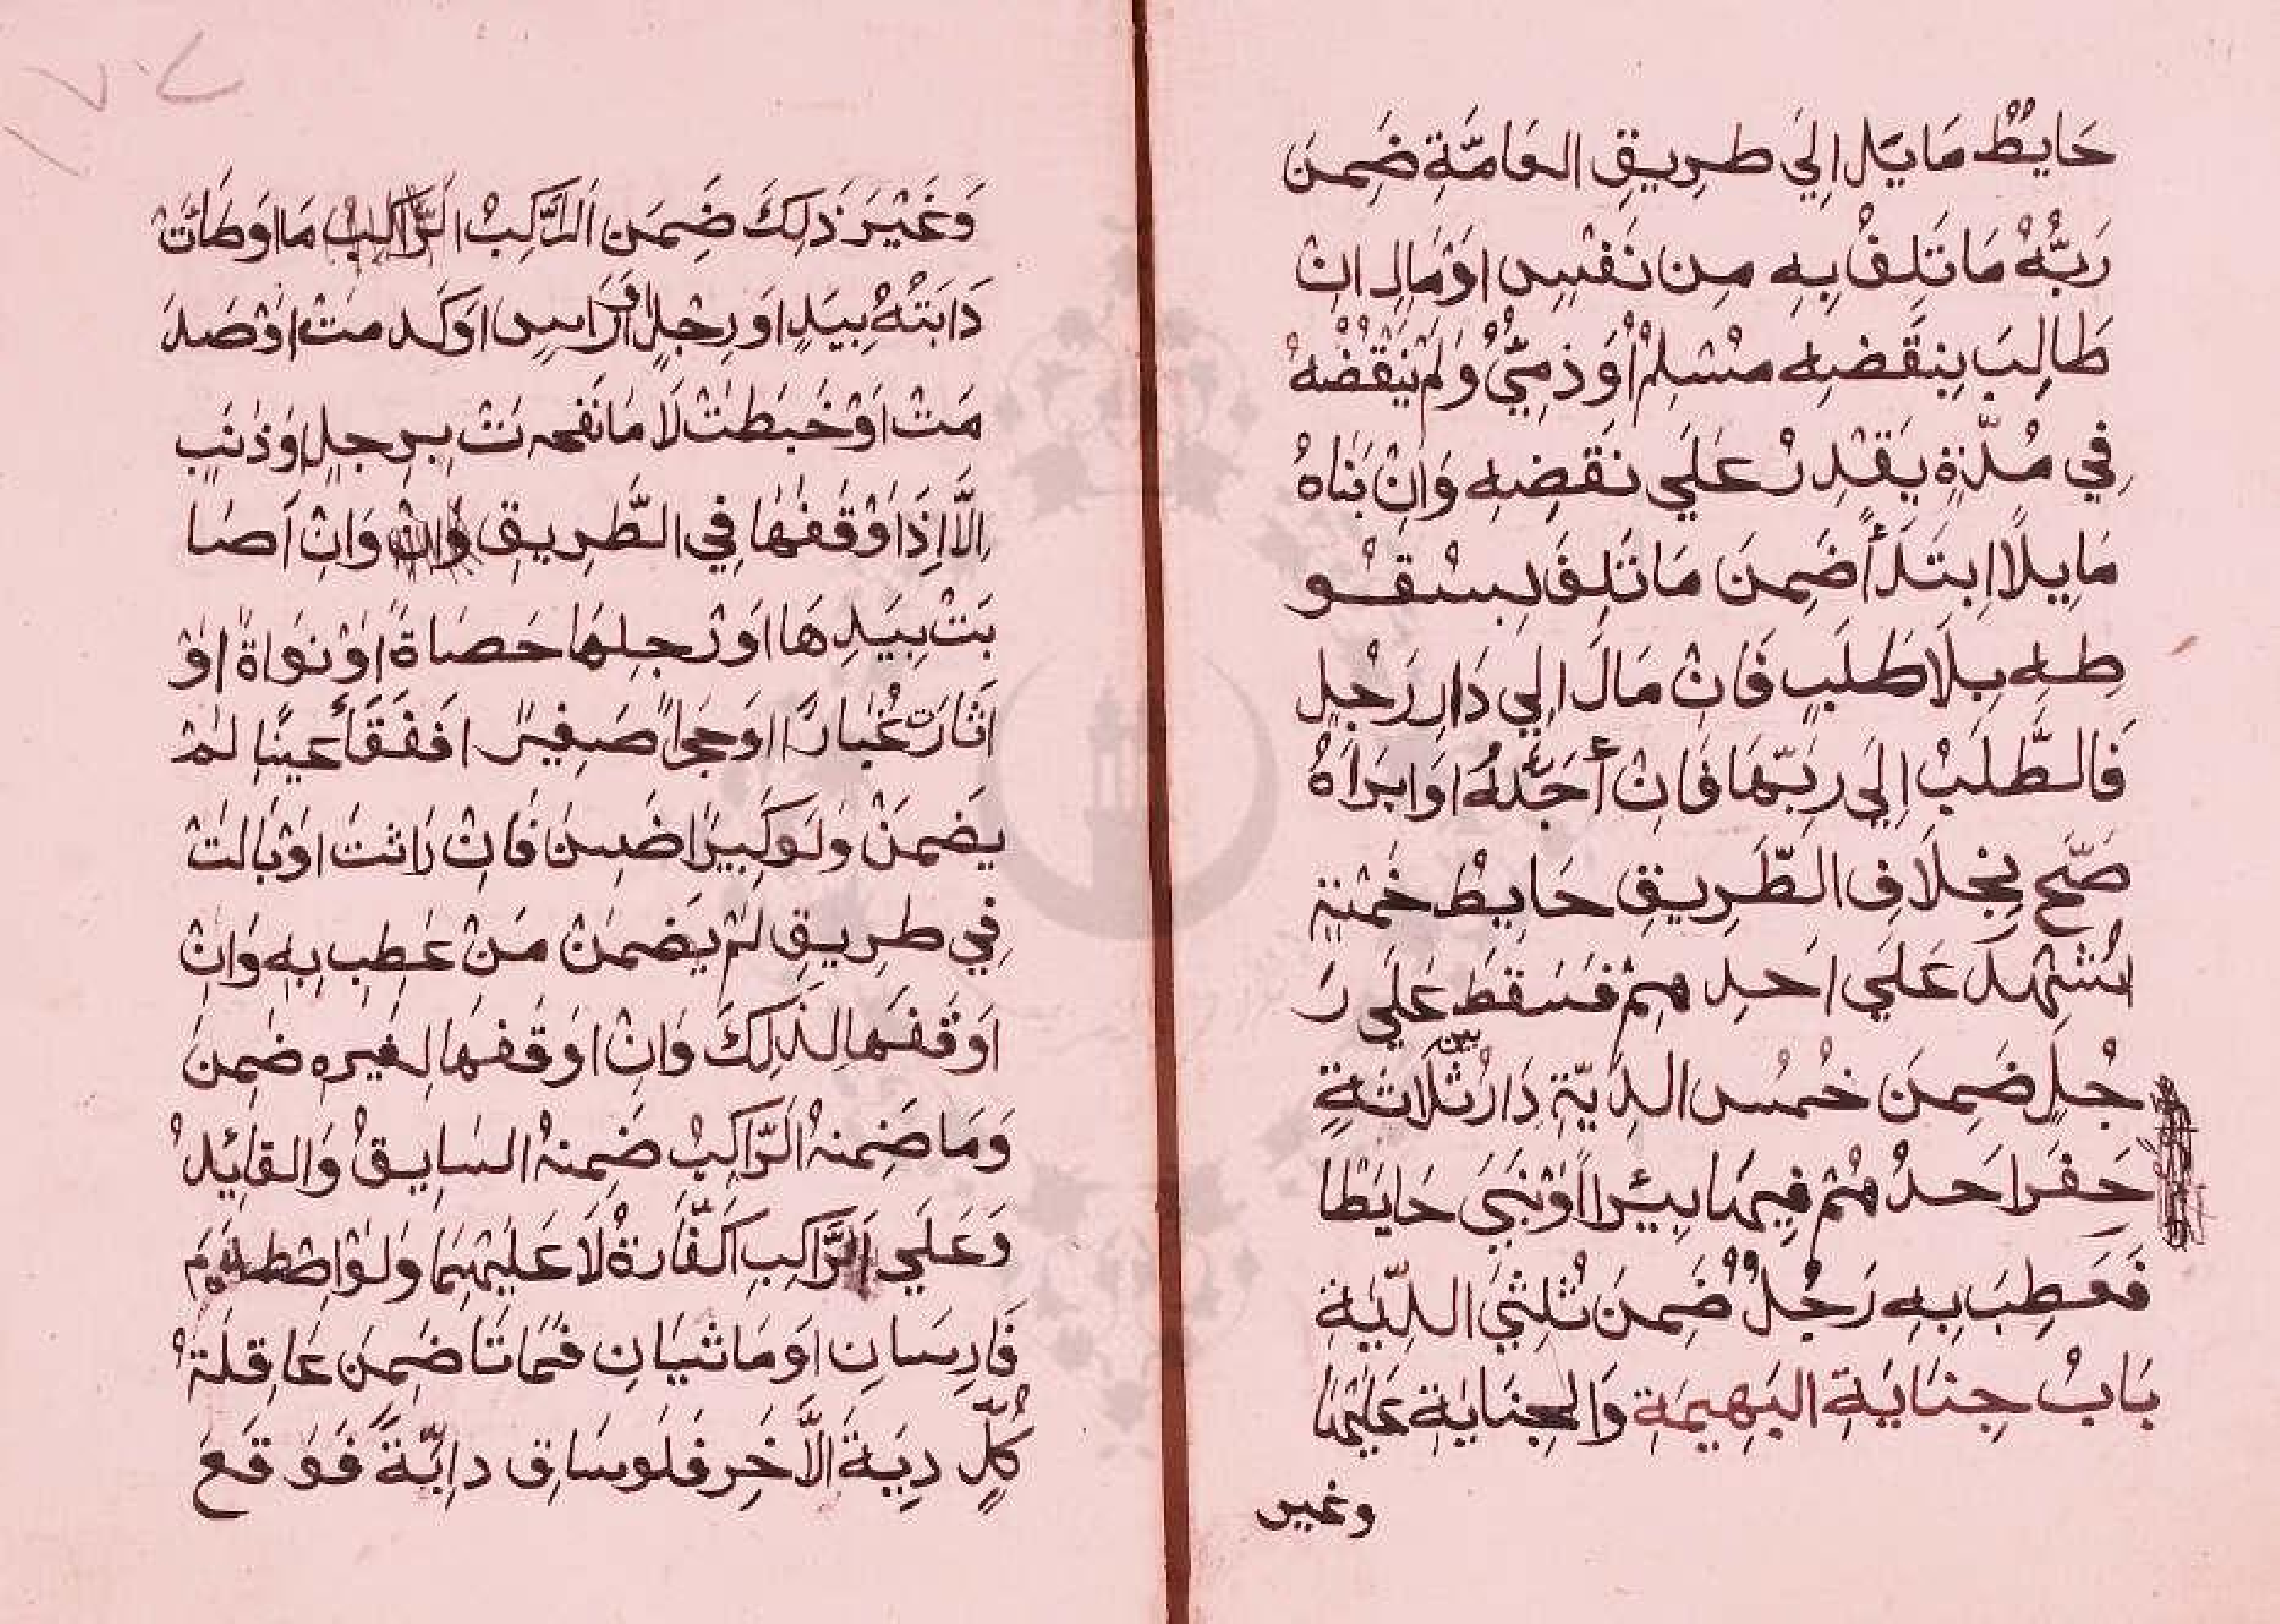 حَايِطٌ مَايَل اِلَي طَرِيقِ العَامَّةِ ضَمِنَ
رَبُّهُ مَا تَلِفُ بِهِ مِن نَفْسٍ اَوْ مَالٍ اِنْ
طَالِبَ بِنَقَضِهِ مسْلِمْ اَوْ ذمِيٌّ وَلَمْ يَنْقُضْهُ
فِي مُدّةٍ يَقْدِرُ عَلَي نَقَضِهِ وَاِنْ بَنَاهُ
مَايِلًا اِبتَدَأً ضَمِنَ مَا تَلِفَ بِسقو
طِهِ بِلَا طَلَبٍ فَانْ مَالَ اِلي دَارِ رَجُلٍ
فَالطَّلَبُ اِلَي رَبّهَا فَانْ أَجَّلَهُ اَوَابرَاهُ
صَحّ بِخِلَافِ الطَّرِيقِ حَايِطُ خَمْسَةٍ
اُشْهِدَ عَلَي اَحَدِ هِمْ فَسَقَطَ عَلَي رَ
جُلٍ ضَمِنَ خُمُسَ الدِيّةِ دَارُ بين ثَلَاثَةٍ
حَفَرَ اَحَدُ هُمْ فِيهَا بِيْرًا اَوْ بَنَيَ حَايِطًا
فَعَطِبَ بِهِ رَجُلٌ ضَمِنَ ثُلثَيْ الدِّيَةِ
بَابُ جِنَايَةِ البَهِيمَةِ وَالجِنَايَةِ عَلَيْهَا
وغير
وَغَيْرَ ذَلِكَ ضَمِنَ الرَّكِبُ الرَّاكِبُ مَا اَوطَأَتْ
دَابَتُهُ بِيَدٍ اَو رِجْلٍ اَوْ رَاسٍ اَوكَدمَتْ اَوْ صَدَ
مَتْ اَوْ خَبَطَتْ لَا مَا نَفَحَتْ بِرِجلٍ اَوْ ذَنَبٍ
اِلَّا اِذَا اَوْقَفَهَا فِي الطَّرِيقِ وَانْ وَانْ اَصَا
بَتْ بِيَدِهَا اَوْ رِجلِهَا حَصَاةً اَوْ نَوَاةً اَوْ
اَثَارَتْ غُبَارًا اَوحَجَرًا صَغِيرًا فَفَقَأَ عَينًا لَمْ
يَضمَنْ وَلَو كَبِيرًا ضَمِنَ فَانْ رَاثتْ اَوْ بَالَتْ
فِي طَرِيقٍ لَمْ يَضمَنْ مَنْ عَطِبَ بِهِ وَانْ
اَوْقَفَهَا لِذَلِكَ وَانْ اَوْقَفَهَا لِغَيرِهِ ضَمِنَ
وَمَا ضَمِنهُ الرَّاكِبُ ضَمِنهُ السَايِقُ وَالقَايِدُ
وَعَلَي الرَّاكِبِ الكَفَّارَةُ لَا عَلَيْهِمَا وَلَوْ اصْطدَمَ
فَارِسَانِ اَوْ مَاشَيَانِ فَمَاتَا ضَمِنَ عَاقِلَةُ
كُلٍّ دِيَةَ الْاَخَرِ فَلَو سَاقَ دابَّةً فَوَقَعَ